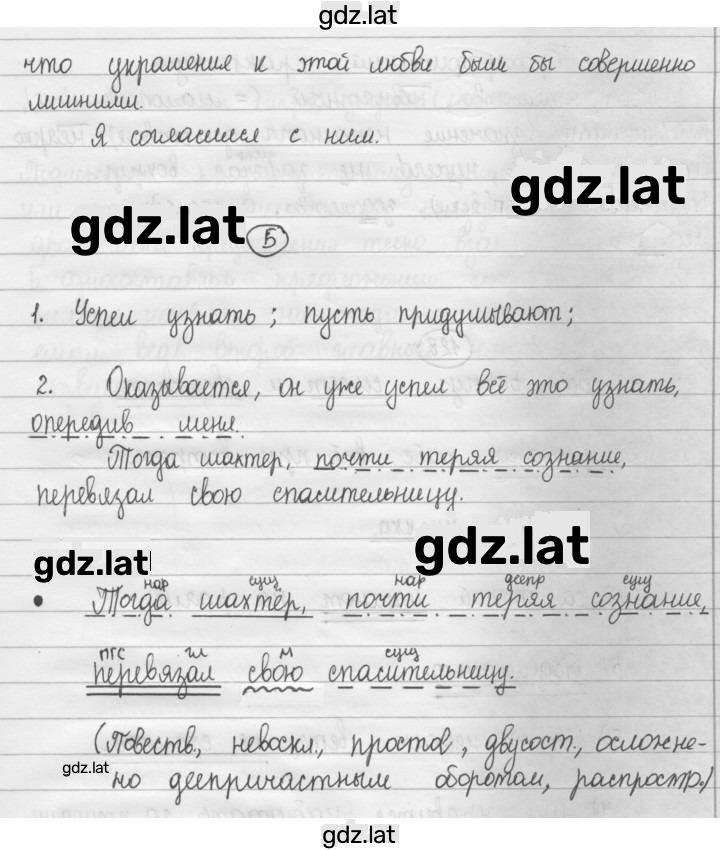 gdz.lat
что украшения к этой любви были бы совершенно
лишними.
Я согласился с ним.
gdz.lat
gdz.lat
Б
1. Успел узнать; пусть придумывают;
2. Оказывается, он уже успел всё это узнать,
опередив меня.
Тогда шахтер, почти теряя сознание,
перевязал свою спасительницу.
gdz.lat
gdz.lat
нар сущ нар деепр сущ
• Тогда шахтёр, почти теряя сознание,
ПГС гл м сущ
перевязал свою спасительницу.
(Повеств., невоскл., простое, двусост., осложне-
gdz.lat
но деепричастным оборотом, распростр.)
gdz.lat